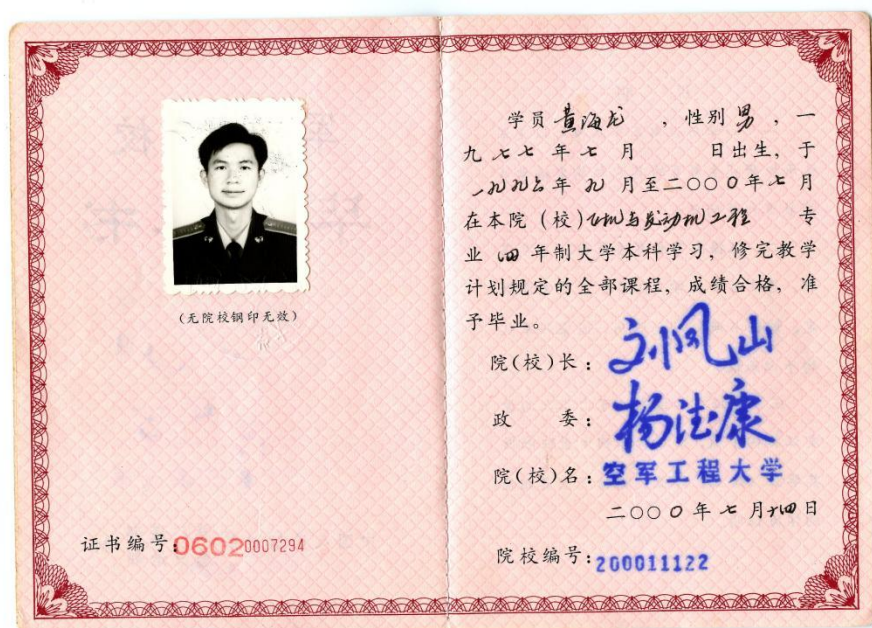 (无院校钢印无效)
证书编号:06020007294
学员黄海龙,性别男,一
九七七年七月 日出生,于
一九九六年九月至二〇〇〇年七月
在本院(校)飞机与发动机工程专
业四年制大学本科学习,修完教学
计划规定的全部课程,成绩合格,准
予毕业。
院(校)长:刘凤山
政 委:杨法康
院(校)名:空军工程大学
二〇〇〇年七月十四日
院校编号:200011122